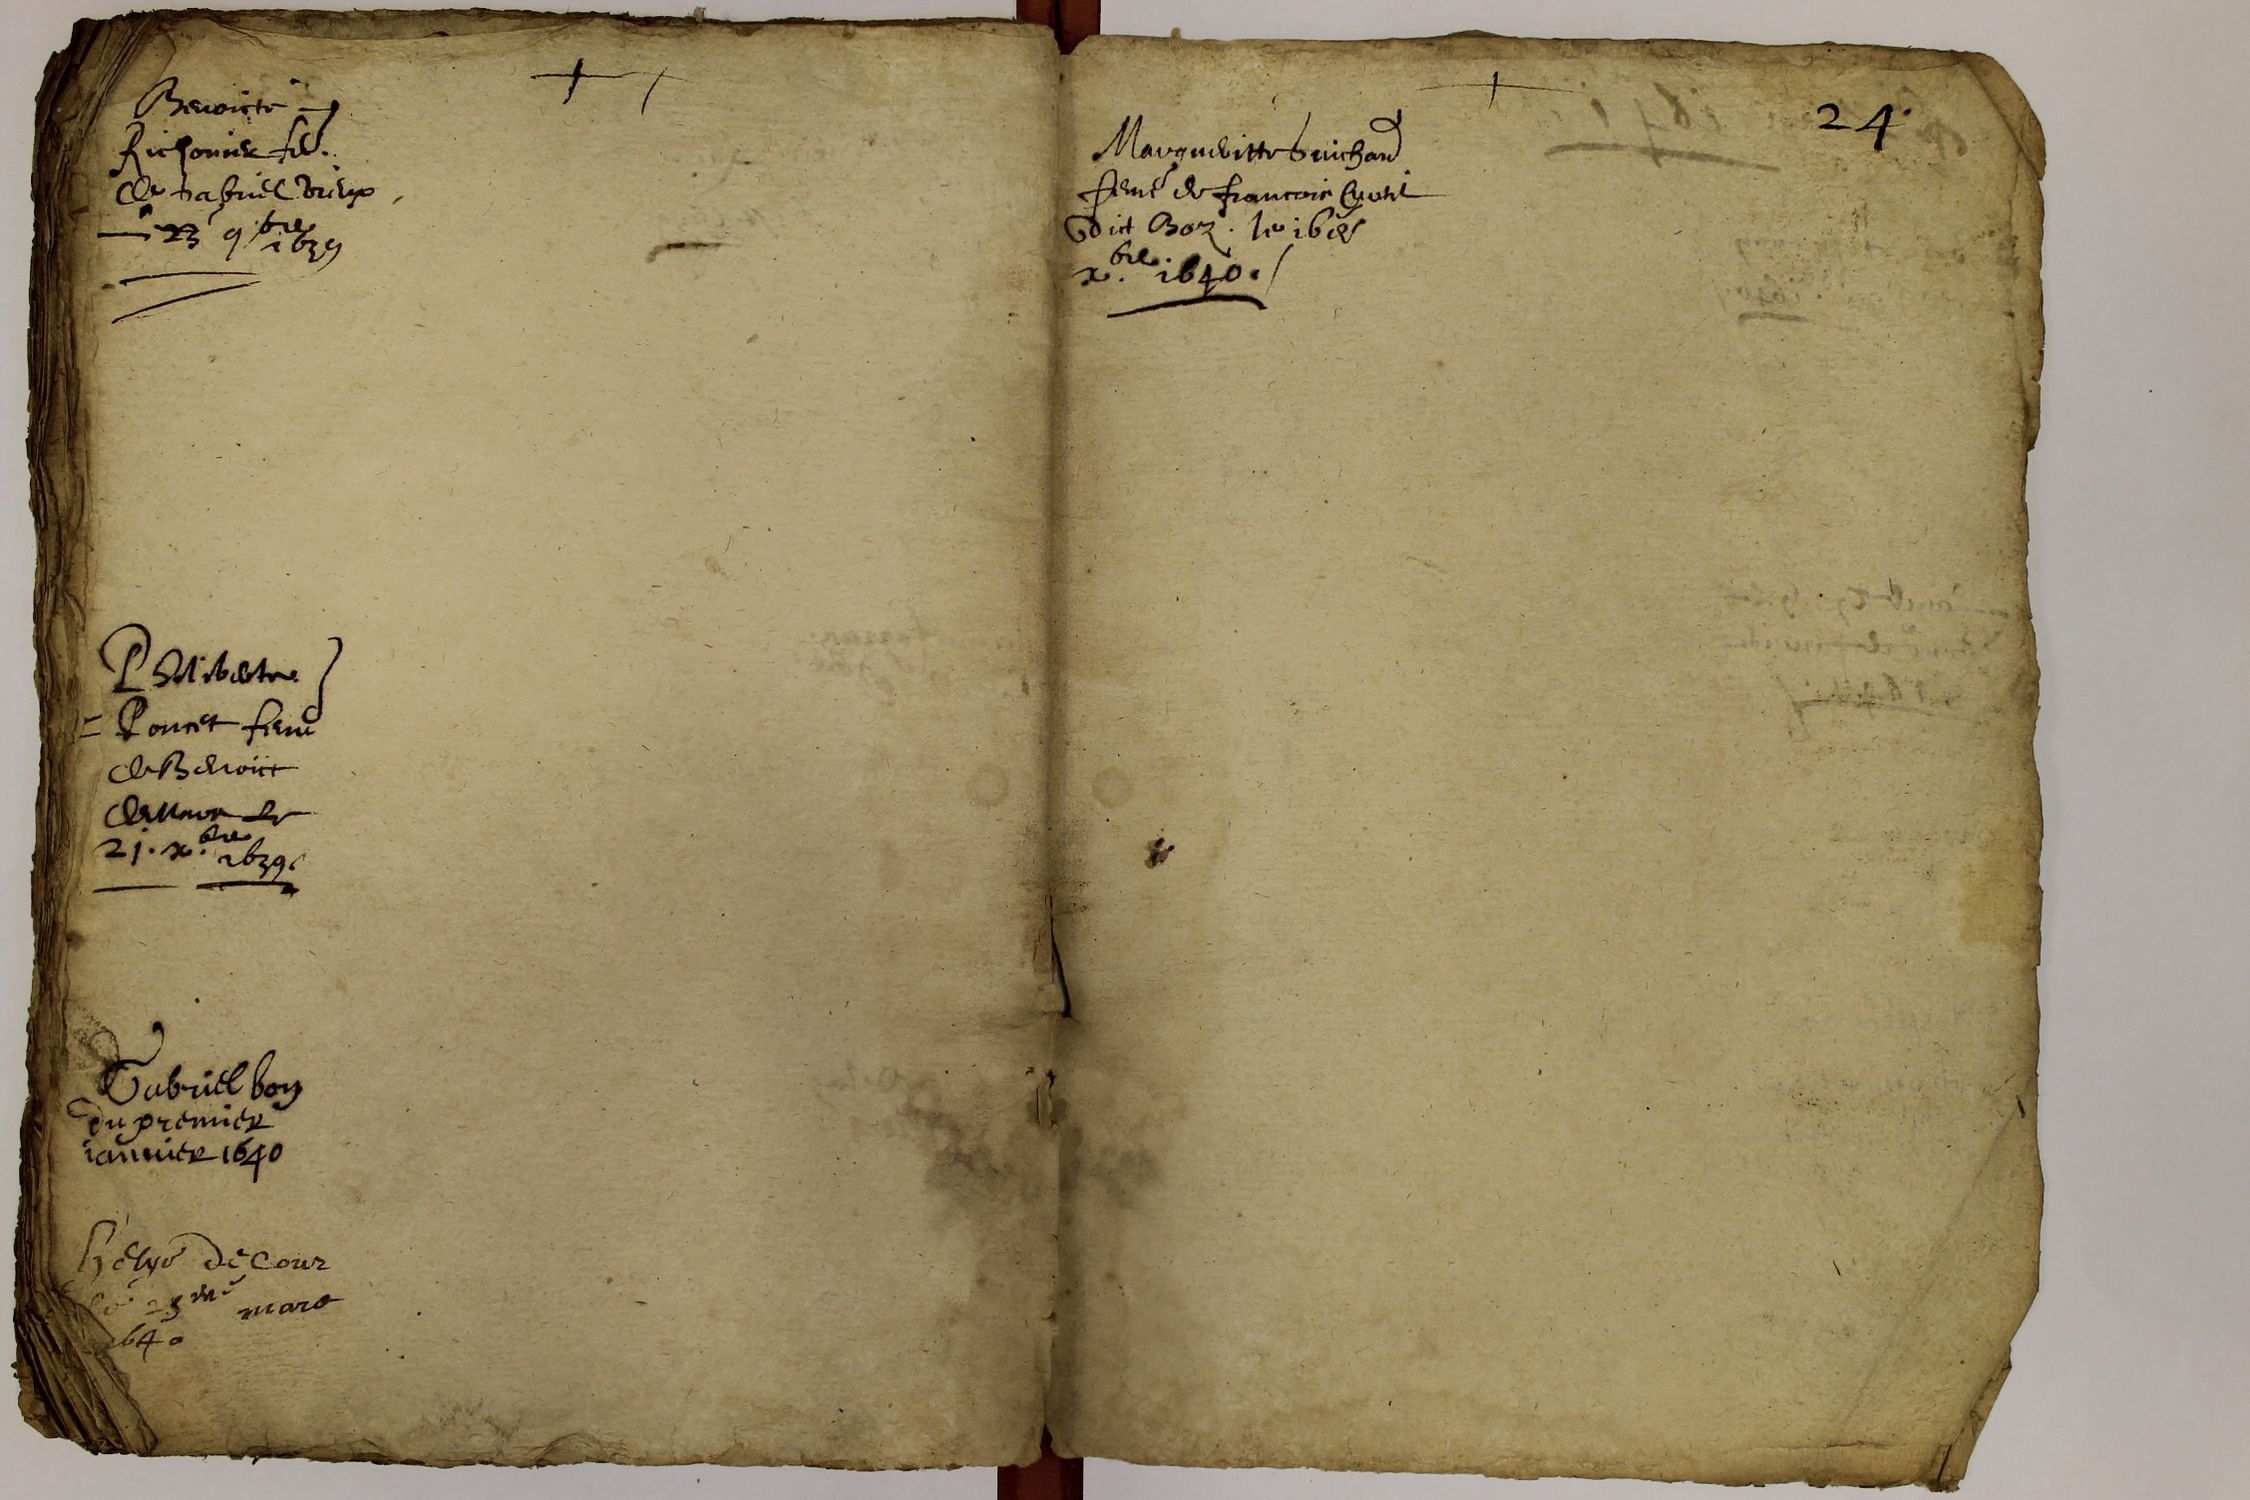 Benoicte
Richonier fe.
de Gabriel Vieux
23 9bre
1639
Philiberte
Poncet feme
de Benoict
le
21. xbre
1639
Gabriel boy
du premier
ianuier 1640
helye de Cour
le 23me mars
1640
24
Margueritte Guichard
feme de francois
dict Boz. le 16e
xbre. 1640.